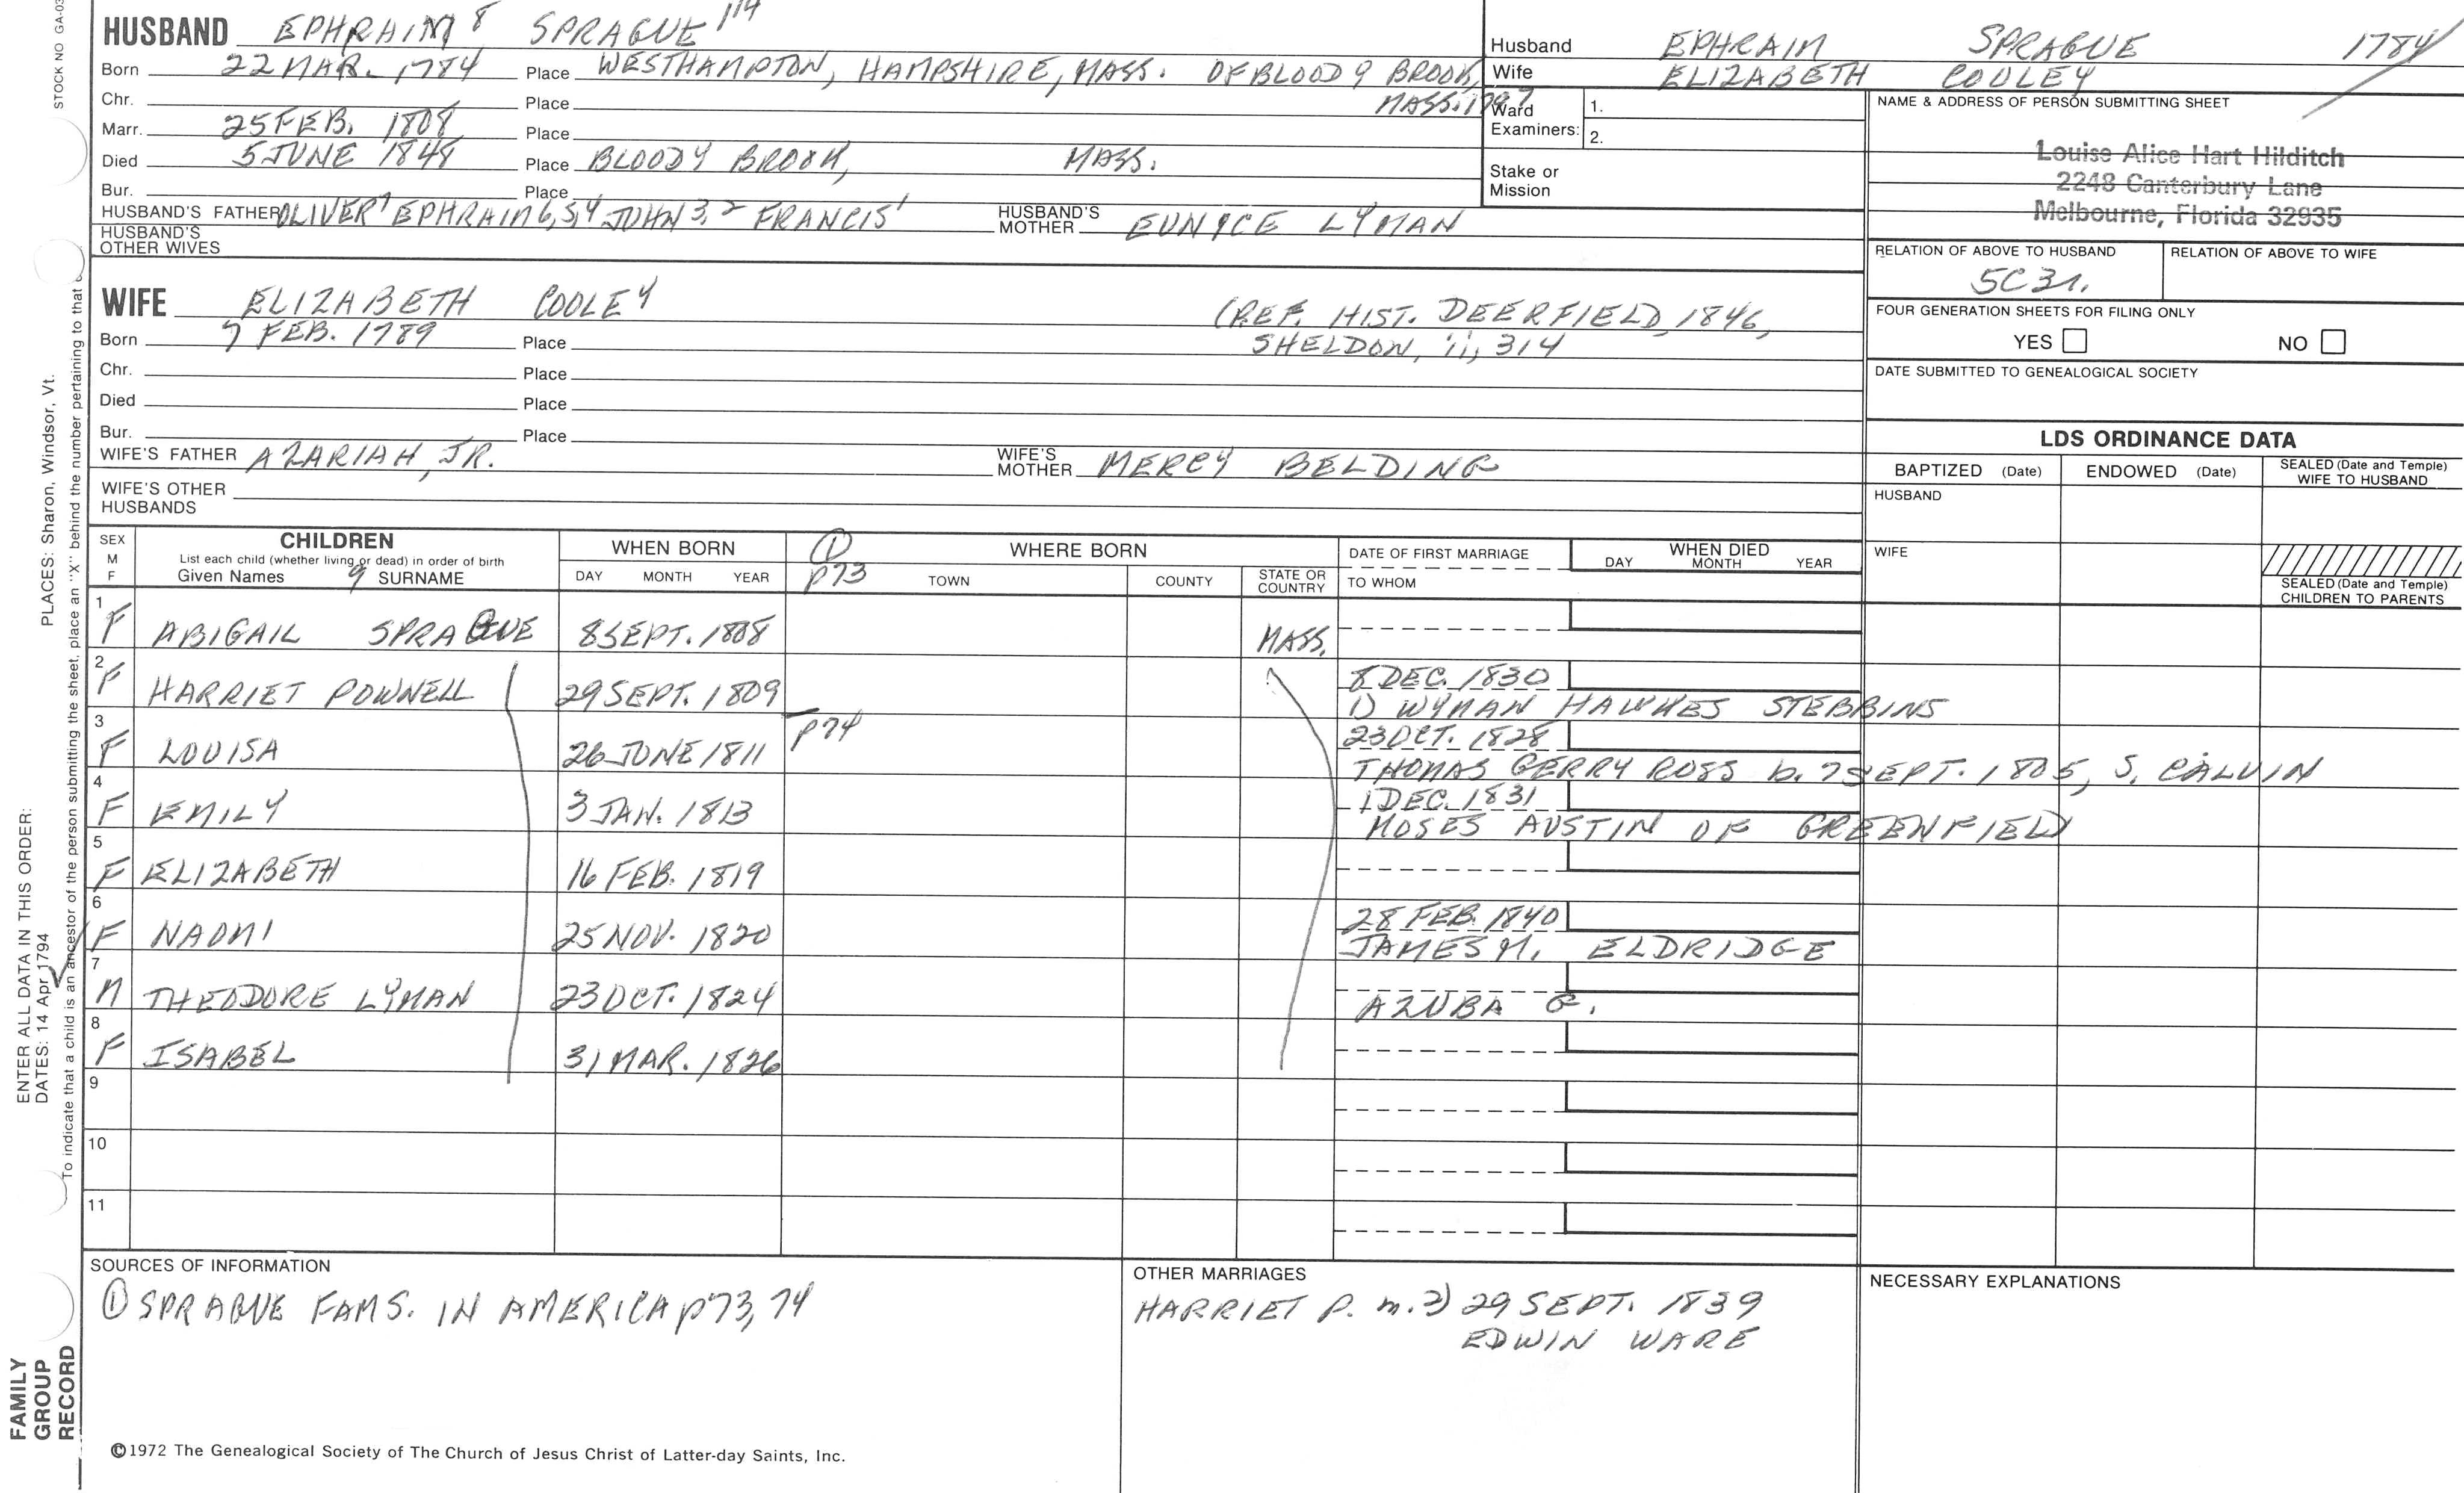 STOCK NO GA-03
HUSBAND EPHRAIM 8 SPRAGUE 114
Born 22 MAR. 1784 Place WESTHAMPTON, HAMPSHIRE, MASS. OF BLOODY BROOK,
MASS. 1797
Chr. Place
Marr. 25 FEB. 1808 Place
Died 5 JUNE 1848 Place BLOODY BROOK, MASS.
Bur. Place
HUSBAND'S FATHER OLIVER 7 EPHRAIM 6,5,4 JOHN 3,2 FRANCIS 1 HUSBAND'S MOTHER EUNICE LYMAN
HUSBAND'S OTHER WIVES
Husband EPHRAIM SPRAGUE 1784
Wife ELIZABETH COOLEY
Ward 1.
Examiners: 2.
Stake or
Mission
NAME & ADDRESS OF PERSON SUBMITTING SHEET
Louise Alice Hart Hilditch
2248 Canterbury Lane
Melbourne, Florida 32935
RELATION OF ABOVE TO HUSBAND RELATION OF ABOVE TO WIFE
5C3r.
FOUR GENERATION SHEETS FOR FILING ONLY
YES NO
DATE SUBMITTED TO GENEALOGICAL SOCIETY
WIFE ELIZABETH COOLEY (REF. HIST. DEERFIELD, 1846,
SHELDON, ii, 314
Born 7 FEB. 1789 Place
Chr. Place
Died Place
Bur. Place
WIFE'S FATHER AZARIAH, JR. WIFE'S MOTHER MERCY BELDING
WIFE'S OTHER
HUSBANDS
LDS ORDINANCE DATA
BAPTIZED (Date) ENDOWED (Date) SEALED (Date and Temple)
WIFE TO HUSBAND
HUSBAND
WIFE
SEALED (Date and Temple)
CHILDREN TO PARENTS
SEX
M
F
CHILDREN
List each child (whether living or dead) in order of birth
Given Names 9 SURNAME
WHEN BORN
DAY MONTH YEAR
① p73
WHERE BORN
TOWN COUNTY STATE OR COUNTRY
DATE OF FIRST MARRIAGE
TO WHOM
WHEN DIED
DAY MONTH YEAR
1 F ABIGAIL SPRAGUE 8 SEPT. 1808 MASS.
2 F HARRIET POWNELL 29 SEPT. 1809 8 DEC. 1830
1) WYMAN HAWKES STEBBINS
3 F LOUISA 26 JUNE 1811 p74 23 OCT. 1828
THOMAS GERRY ROSS b. 7 SEPT. 1805, S. CALVIN
4 F EMILY 3 JAN. 1813 1 DEC. 1831
MOSES AUSTIN OF GREENFIELD
5 F ELIZABETH 16 FEB. 1819
6 F NAOMI 25 NOV. 1820 28 FEB. 1840
JAMES M. ELDRIDGE
7 M THEODORE LYMAN 23 OCT. 1824
AZUBA G.
8 F ISABEL 31 MAR. 1826
9
10
11
SOURCES OF INFORMATION
① SPRAGUE FAMS. IN AMERICA p73, 74
OTHER MARRIAGES
HARRIET P. m. 2) 29 SEPT. 1839
EDWIN WARE
NECESSARY EXPLANATIONS
©1972 The Genealogical Society of The Church of Jesus Christ of Latter-day Saints, Inc.
FAMILY
GROUP
RECORD
ENTER ALL DATA IN THIS ORDER:
DATES: 14 Apr 1794
PLACES: Sharon, Windsor, Vt.
To indicate that a child is an ancestor of the person submitting the sheet, place an "X" behind the number pertaining to that